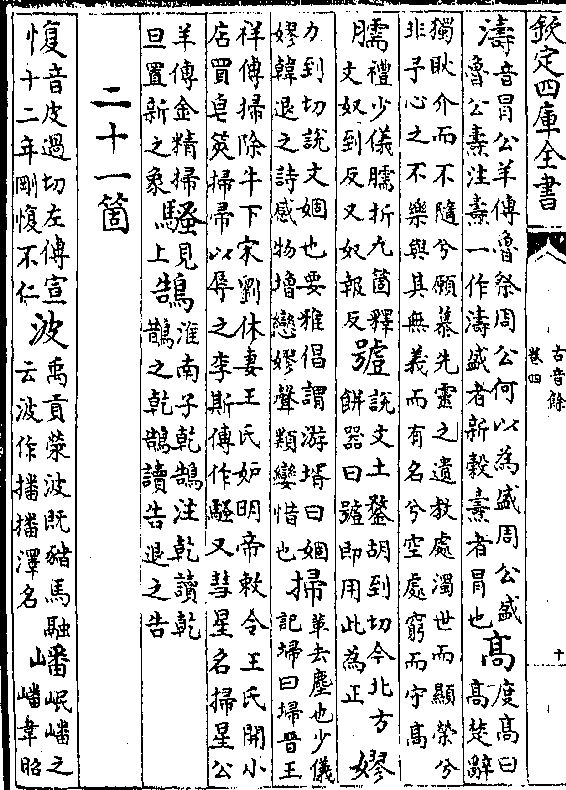 欽定四庫全書
古音餘
卷四
十
濤音冒公羊傳魯祭周公何以為盛周公盛
魯公燾注燾一作濤盛者新穀燾者冒也高度高曰
高楚辭
獨耿介而不隨兮願慕先靈之遺教處濁世而顯榮兮
非予心之不樂與其無義而有名兮空處窮而守高
臑禮少儀臑折九箇釋
文奴到反又奴報反號説文土鍪胡到切今北方
餅器曰號即用此為正嫪
力到切説文婟也要雅倡謂游壻曰婟
嫪韓退之詩感物增戀嫪聲類孌惜也掃革去塵也少儀
記埽曰埽晉王
祥傳掃除牛下宋劉休妻王氏妒明帝敕令王氏開小
店買皂莢掃帚以辱之李斯傳作騷又彗星名掃星公
羊傳金精掃
旦置新之象騷見
上鵠淮南子乾鵠注乾讀乾
鵲之乾鵠讀告退之告
二十一箇
愎音皮過切左傳宣
十二年剛愎不仁波禹貢滎波既豬馬融
云波作播播澤名嶓岷嶓之
嶓韋昭